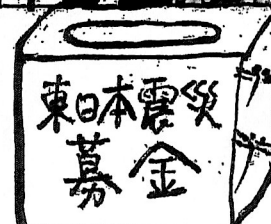 東日本震災
募金